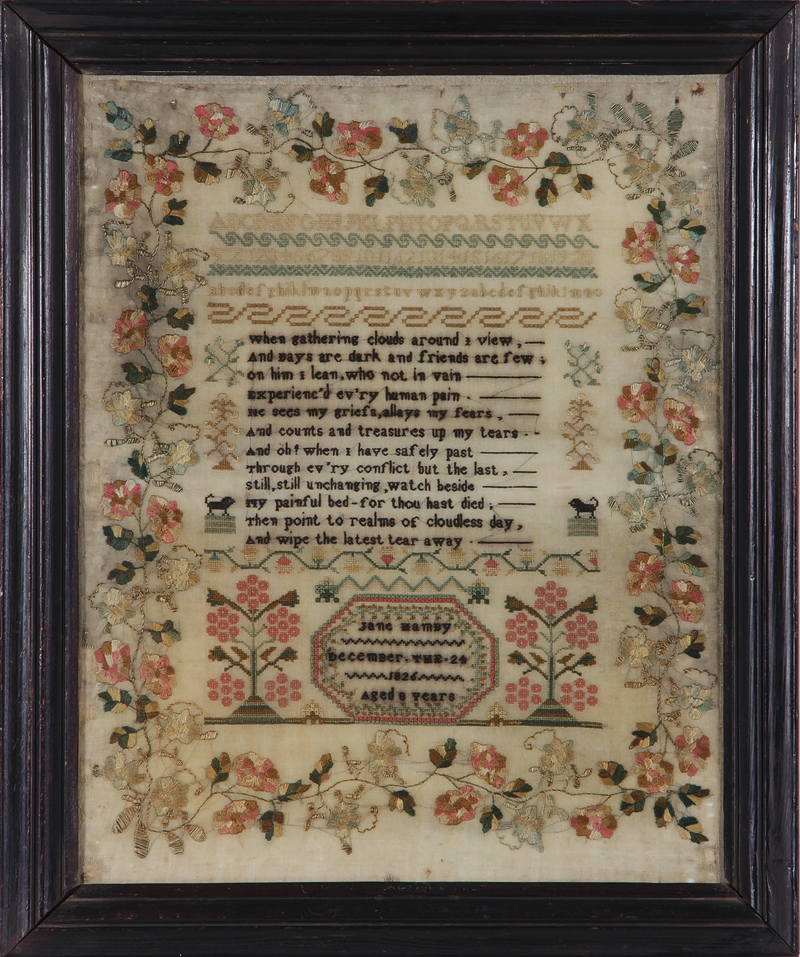 ABCDEFGHIKLMNOPQRSTUVWX
abcdefghiklmnopqrstuvwxyzabcdefghiklmno
When gathering clouds around I view,
And Days are dark and friends are few;
On him I lean, who not in vain
Experienc'd ev'ry human pain.
He sees my griefs, allays my fears,
And counts and treasures up my tears.
And oh! when I have safely past
Through ev'ry conflict but the last,
still, still unchanging, watch beside
My painful bed-for thou hast died;
Then point to realms of cloudless day,
And wipe the latest tear away.
Jane Hamby
December. THE. 24
1826
Aged 8 Years